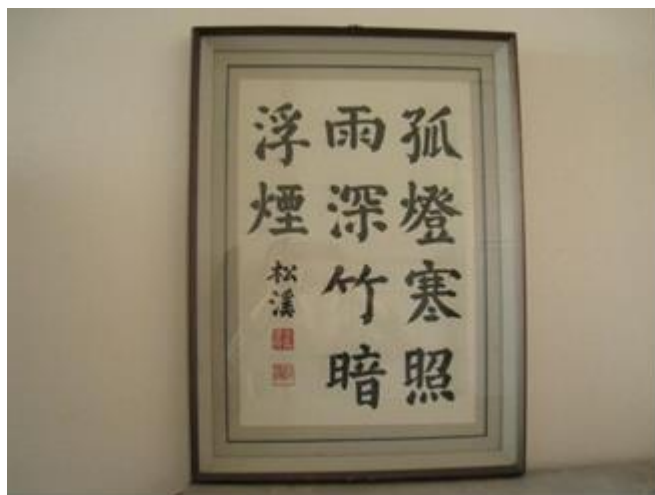 孤燈寒照
雨深竹暗
浮煙
松溪